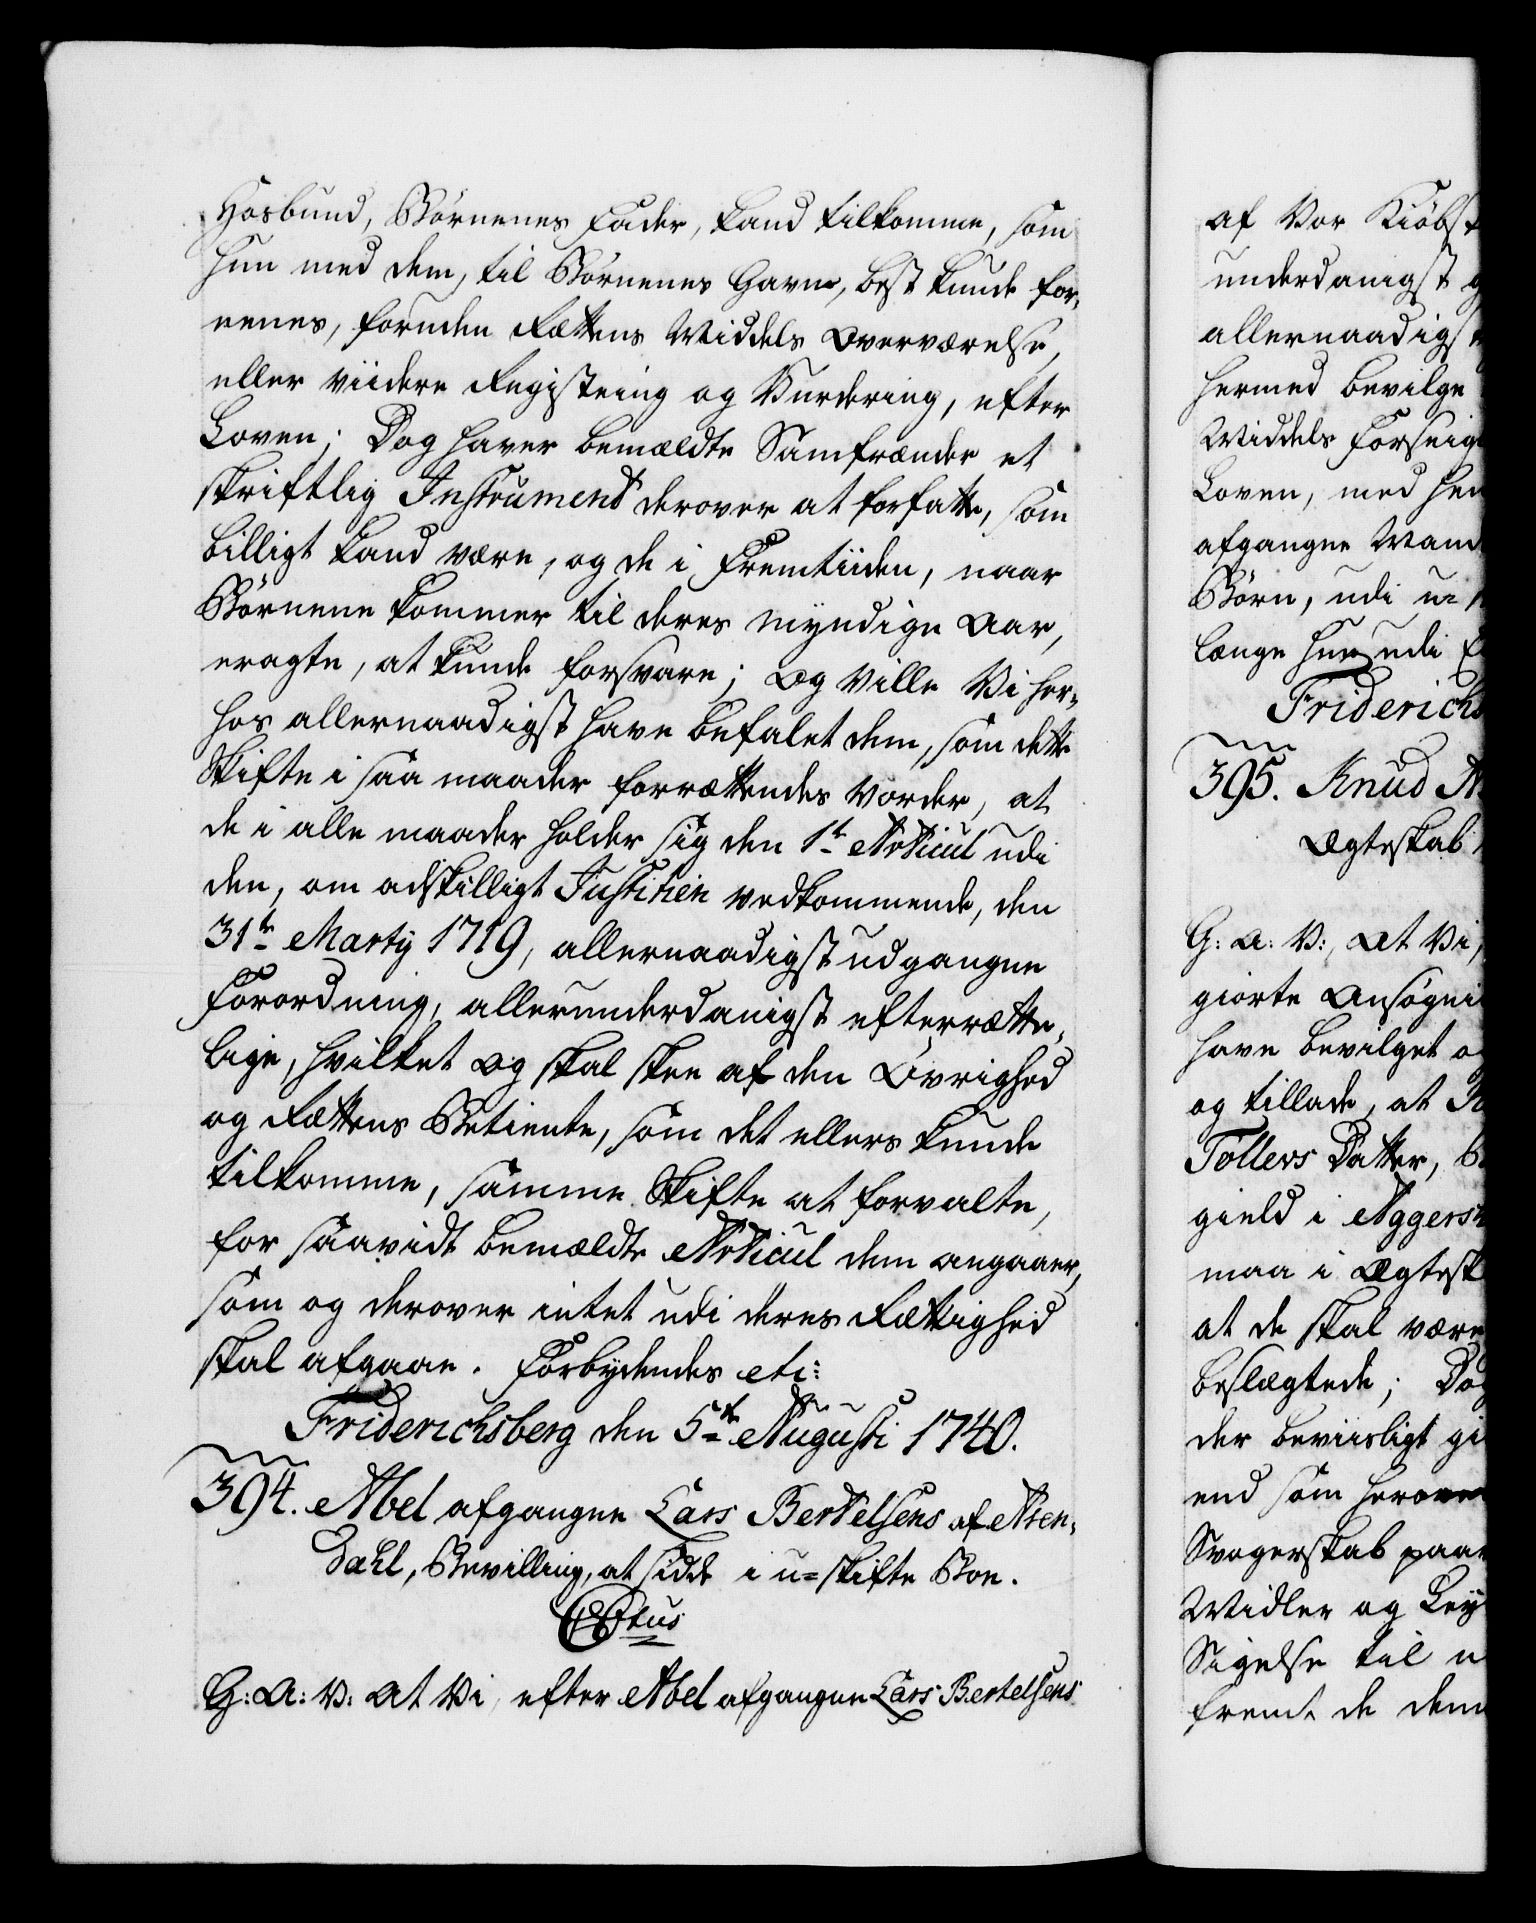 Hosbund, Børnenes Fader, kand tilkomme, som
hun med dem, til Børnenes Gavn, best kunde for-
eenes, foruden Rættens Middels Overværelse,
eller viidere Registering og Vurdering, efter
Loven; Dog haver bemældte Samfrænder et
skriftlig Instrument derover at forfatte, som
billigt kand være, og de i Fremtiiden, naar
Børnene kommer til deres myndige Aar,
eragte, at kunde forsvare; Og Ville Vi her-
hos allernaadigst have befalet dem, som dette
Skifte i saa maader forrættendes vorder, at
de i alle maader holder sig den 1te Articul udi
den, om adskilligt Justitien vedkommende, den
31te Martij 1719, allernaadigst udgangne
Forordning, allerunderdanigst efterrette-
lige, hvilket og skal skee af den Øvrighed
og Rættens Betiente, som det ellers kunde
tilkomme, samme Skifte at forvalte,
for saavidt bemældte Articul dem angaaer,
som og derover intet udi deres Rættighed
skal afgaae. Forbydendes etc:
Friderichsberg den 5te Augusti 1740.
394. Abel afgangne Lars Bertelsens af Aren-
dahl, Bevilling, at sidde i u-skifte Boe.
G: A: V: At Vi, efter Abel afgangne Lars Bertelsens
af Vor Kiøbst
underdanigst
allernaadigst
hermed bevilge
Middels Forseigl
Loven, med hen
afgangne Mand
Børn, udi u-
længe hun udi
Friderichs
395. Knud
Ægteskab
G: A: V:, At Vi,
giorte Ansøgni
have bevilget o
og tillade, at
Tollevs Datter,
gield i Aggersh
maa i Ægtesk
at de skal være
beslægtede; Dog
der beviisligt gi
end som herove
Svogerskab paa
Midler og Ley
Sigelse til u
fremt de dem